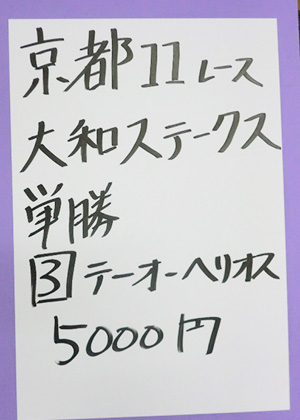 京都11レース
大和ステークス
単勝
3 テーオーヘリオス
5000円